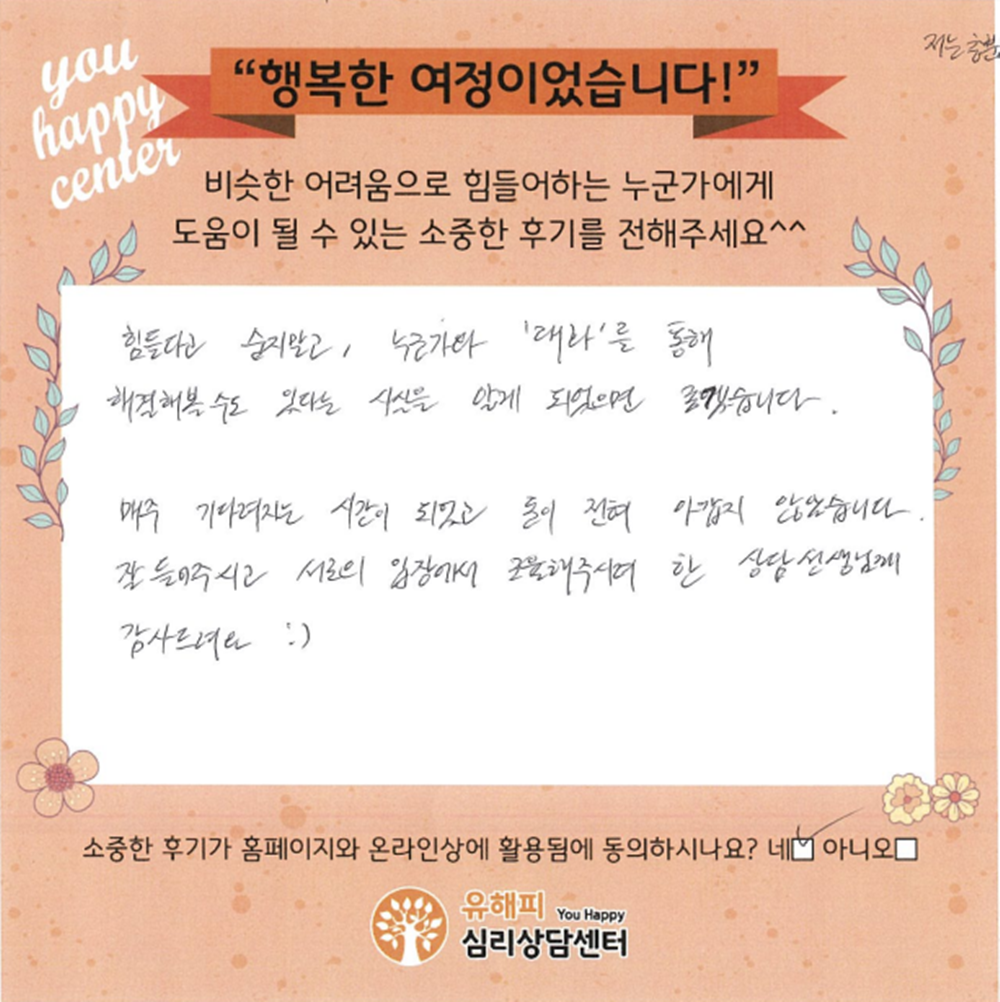 you
happy
center
저는 충분
“행복한 여정이었습니다!”
비슷한 어려움으로 힘들어하는 누군가에게
도움이 될 수 있는 소중한 후기를 전해주세요^^
힘들다고 숨지말고, 누군가와 '대화'를 통해
해결해볼 수도 있다는 사실을 알게 되었으면 좋겠습니다.
매주 기다려지는 시간이 되었고 돈이 전혀 아깝지 않았습니다.
잘 들어주시고 서로의 입장에서 조율해주시려 한 상담선생님께
감사드려요 :)
소중한 후기가 홈페이지와 온라인상에 활용됨에 동의하시나요? 네 아니오
유해피 You Happy
심리상담센터